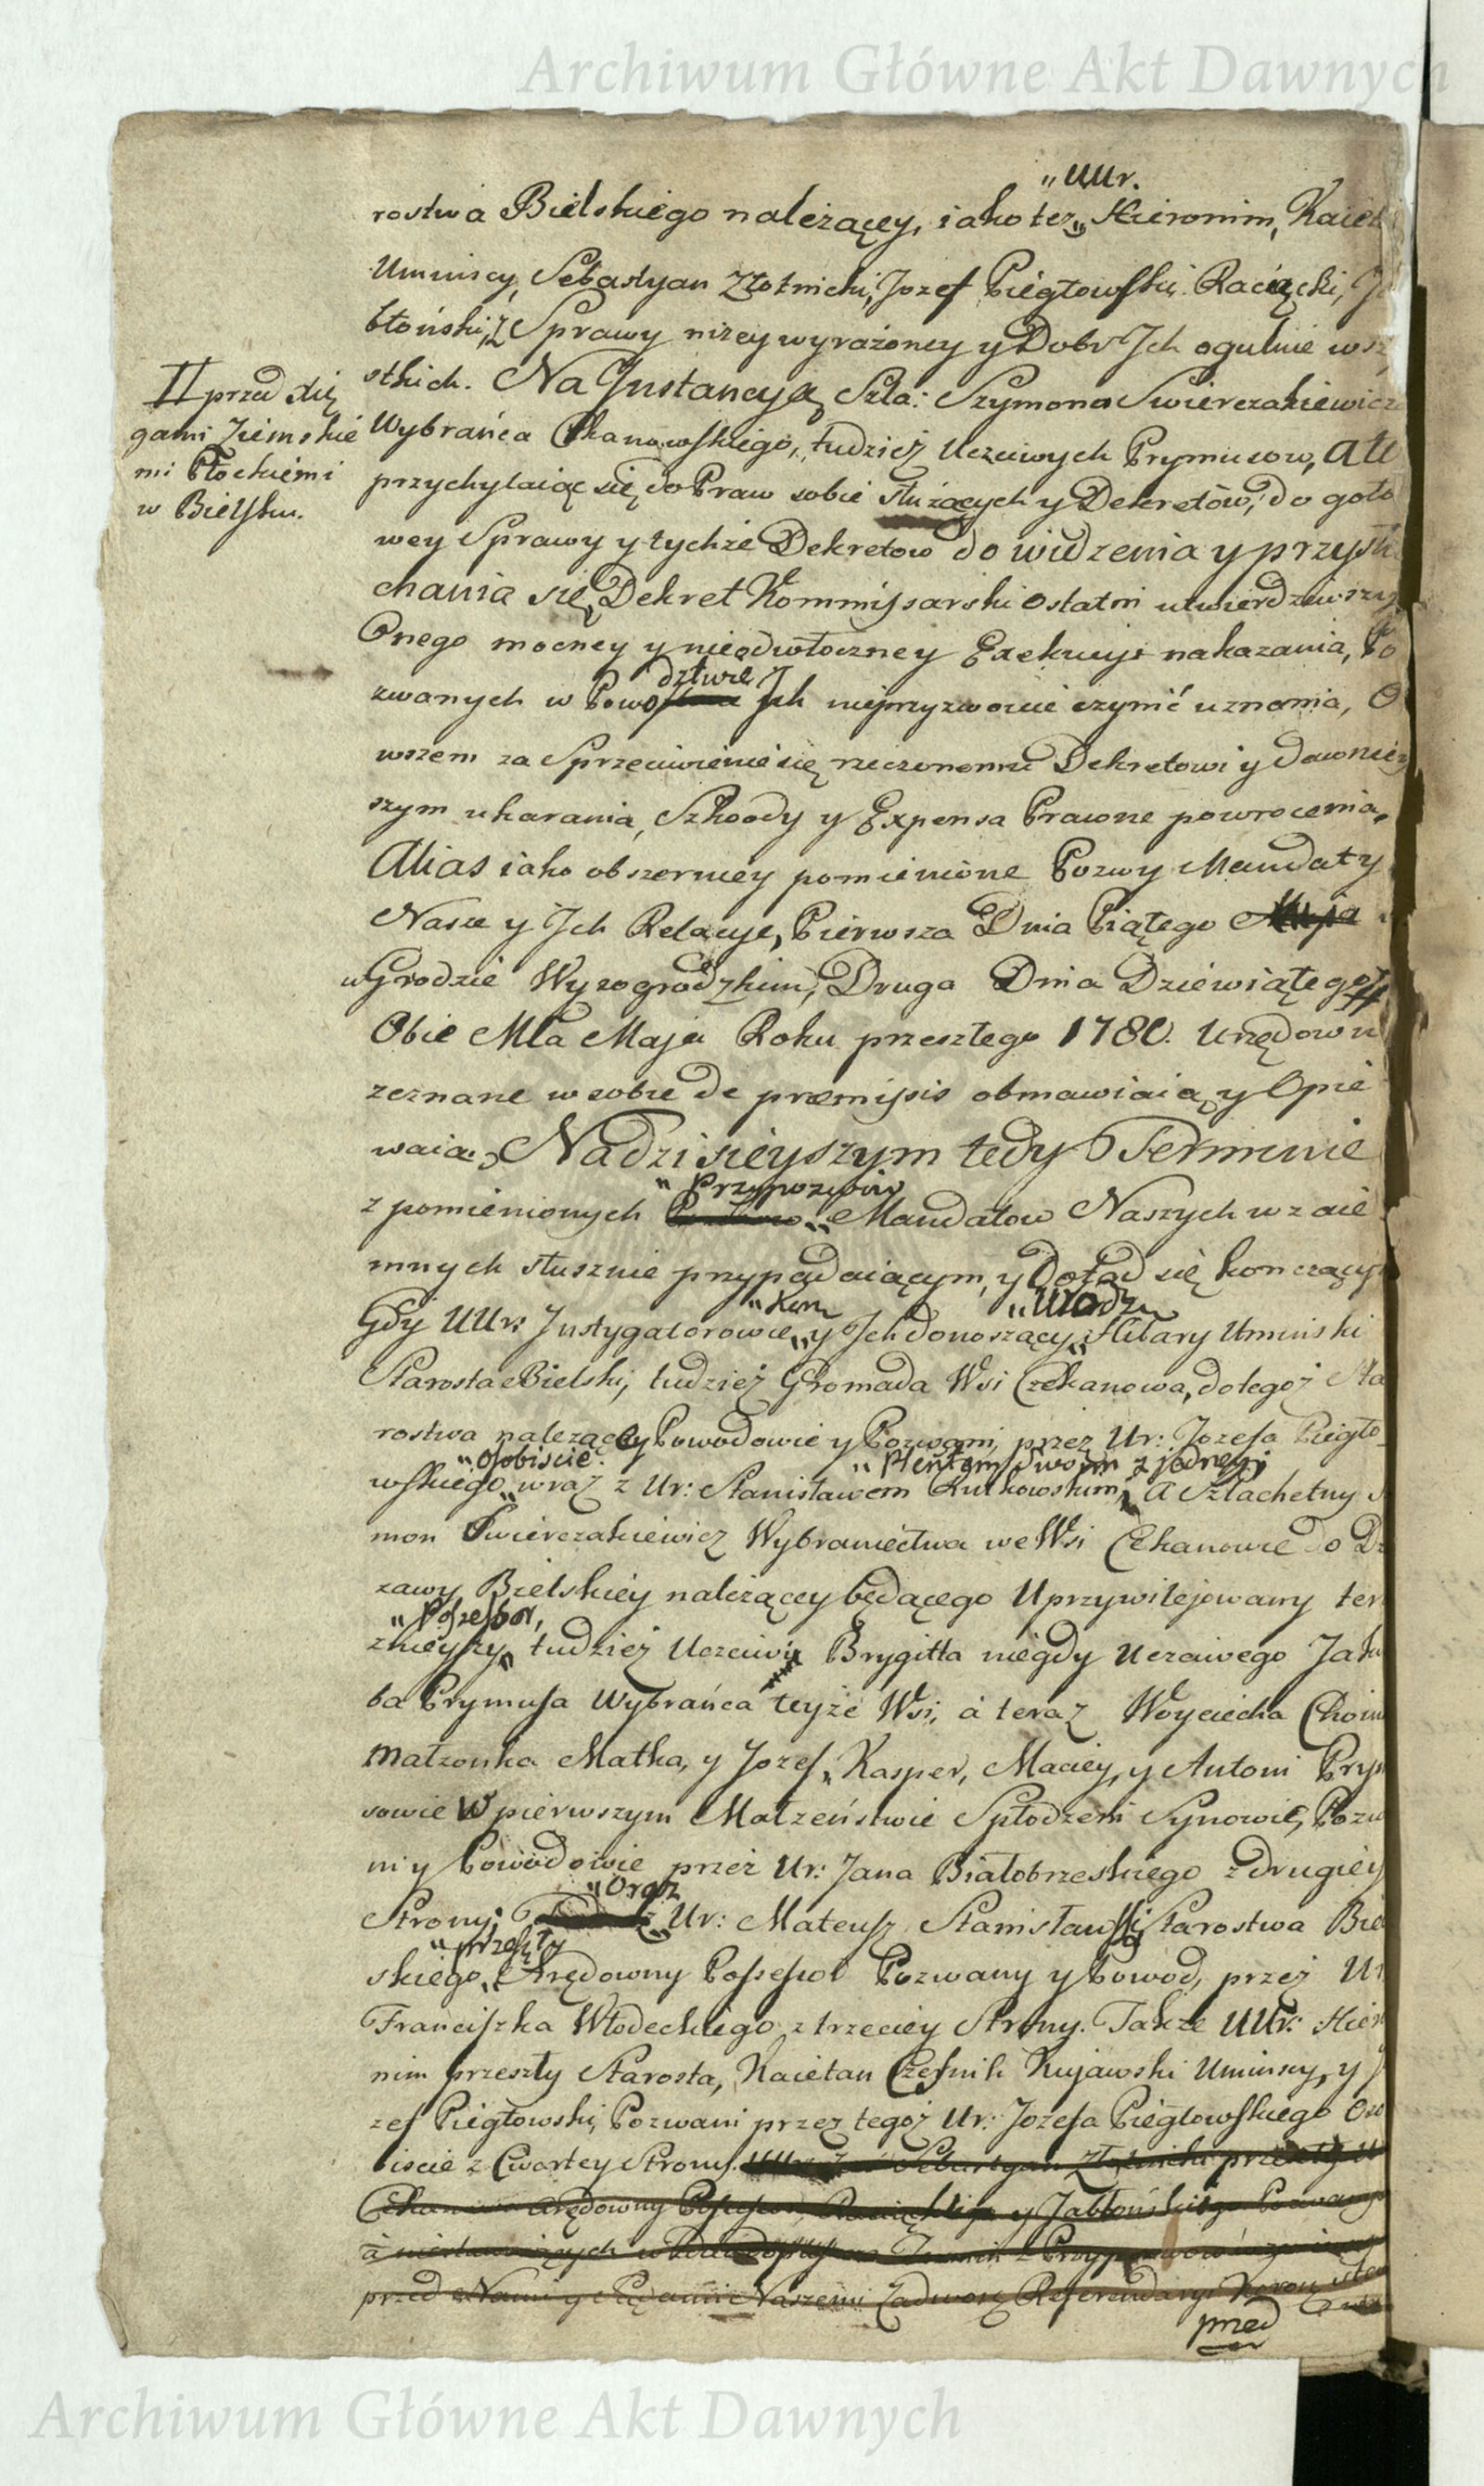 Archiwum Główne Akt Dawnych
„ UUr.
rostwa Bielskiego należący, iako też „ Hieronim, Kaiet
Uminscy, Sebastyan Złotnicki, Jozef Piegłowski Racięcki, Ja
błoński, z Sprawy niżey wyrażoney y Dobr Ich ogulnie wszy
stkich. Na Instancyą Szla: Szymona Swierczakiewicza
Wybrańca Ckanowskiego, tudzież Uczciwych Prymusow, Ate
przychylaiąc się do Praw sobie służących y Dekretów, do goto
wey Sprawy y tychże Dekretow do widzenia y przysłu
chania się, Dekret Kommissarski ostatni utwierdziwszy
Onego mocney y nieodwłoczney Exekucyi nakazania, Po
dztwie
zwanych w Powo Ich nieprzyzwoicie czynić uznania, O
wszem za Sprzeciwienie się rzeczonemu Dekretowi y dawniey
szym ukarania, Szkody y Expensa Prawne powrocenia,
Alias iako obszerniey pomienione Pozwy Mandaty
Nasze y Ich Relacye, Pierwsza Dnia Piątego Maja
w Grodzie Wyzogrodzkim, Druga Dnia Dziewiątego
Obie Mca Maja Roku przeszłego 1780. Urzędown
zeznane w sobie de præmissis obmawiaią y Opie
waią. Na dzisieyszym tedy Terminie
„ Przypozwow
z pomienionych „ Mandatow Naszych wzaie
mnych słusznie przypadaiącym, y dotąd się kończący
„ Kor: „ Urodz:
Gdy UUr: Instygatorowie „ y Ich donoszący „ Hilary Uminski
Starosta Bielski, tudzież Gromada Wsi Czekanowa, do tegoż Sta
rostwa należący Powodowie y Pozwani, przez Ur: Jozefa Piegło
„ osobiscie. „ Plentem swoim z jedney
wskiego „ wraz z Ur: Stanisławem Rutkowskim, A Szlachetny S
mon Swierczakiewicz Wybraniectwa we Wsi Ckanowie do Dz
zawy Bielskiey należącey będącego Uprzywilejowany ter
„ Possessor,
znieyszy „ tudzież Uczciwi Brygitta niegdy Uczciwego Jaku
ba Prymusa Wybrańca teyże Wsi, a teraz Woyciecha Choin
Małżonka Matka, y Jozef, Kasper, Maciey, y Antoni Prym
sowie W pierwszym Małżeństwie Spłodzeni Synowie, Pozw
ni y Powodowie przez Ur: Jana Białobrzeskiego z drugiey
„ Oraz
Strony; „ Ur: Mateusz Stanisławski Starostwa Biel
„ przeszły
skiego „ Arędowny Possessor Pozwany y Powod, przez Ur
Franciszka Włodeckiego z trzeciey Strony. Takze UUr: Hiero
nim przeszły Starosta, Kaietan Czesnik Kujawski Uminscy, y J
zef Piegłowski, Pozwani przez tegoż Ur: Jozefa Piegłowskiego Oso
biscie z Czwartey Strony. Sebastyan Złotnicki przeszły
Ckanowa Arędowny Possessor, y Jabłońskiego Pozwany
a niestawaiących
przed Nami y Sądami Naszemi Zadwor: Referendarz: Koron:
przed
II przed Xię
gami Ziemskie
mi Płockiemi
w Bielsku.
Archiwum Główne Akt Dawnych